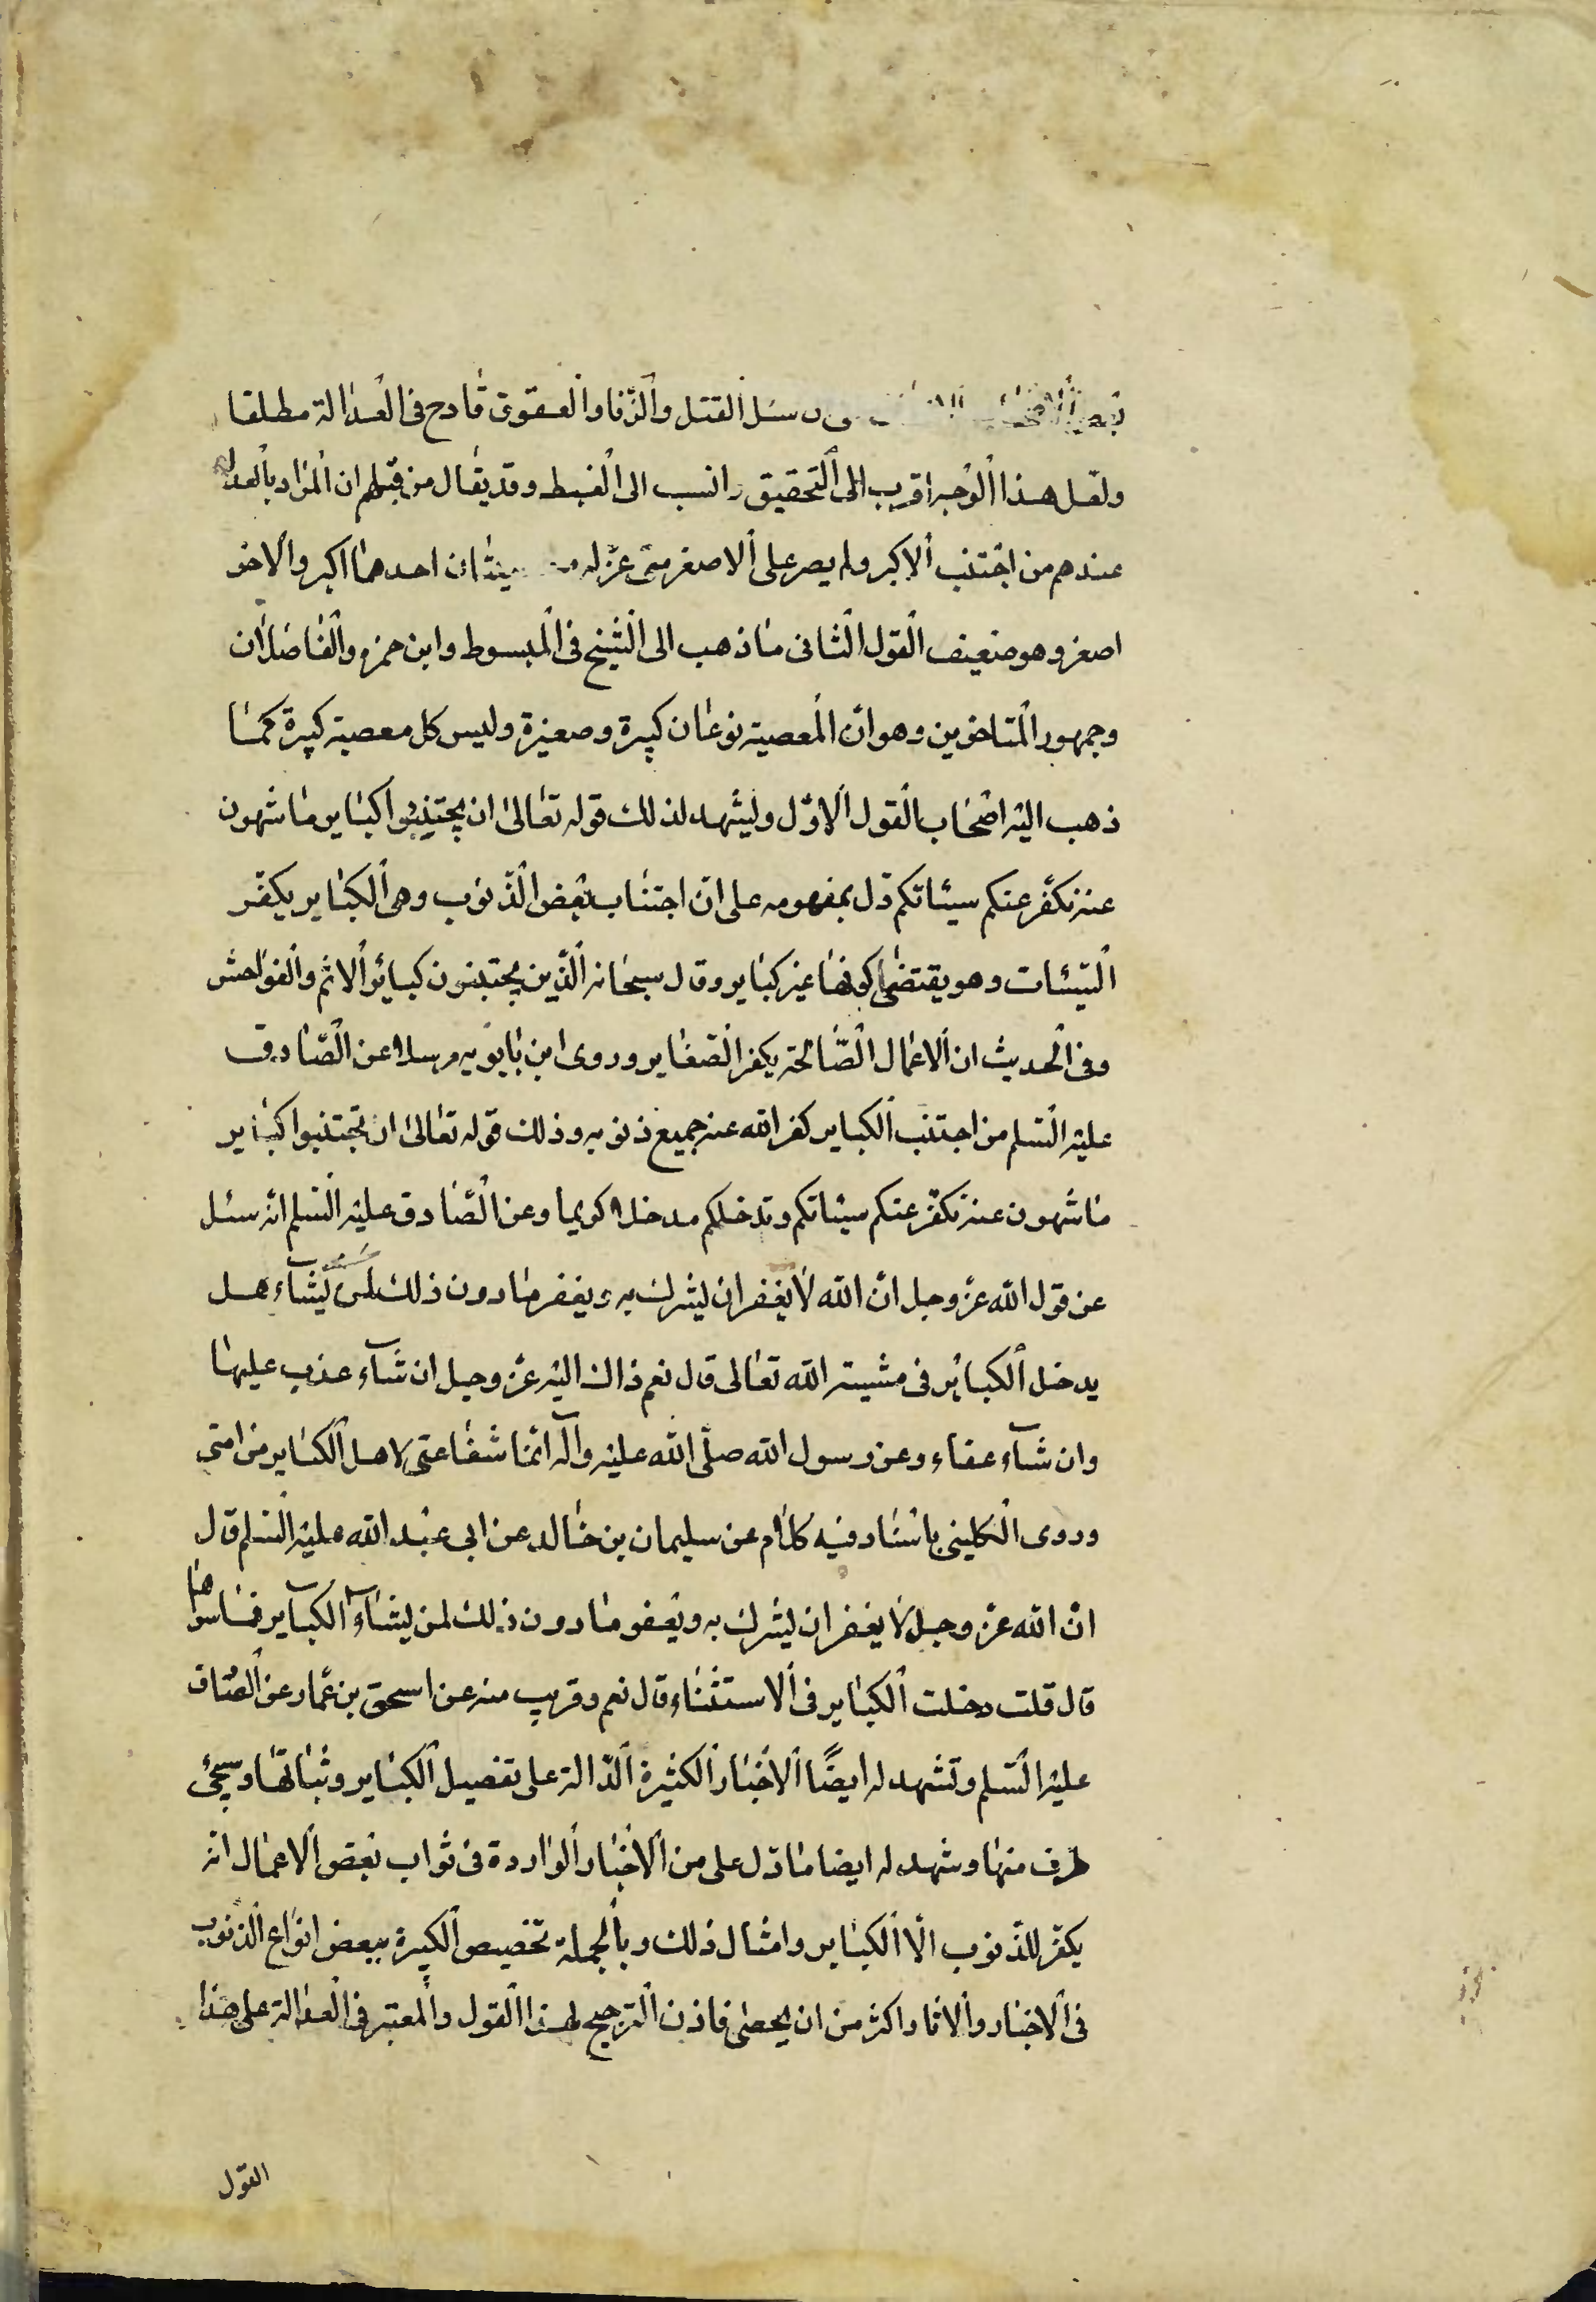 مثل القتل والزنا والعقوق قادح فى العدالة مطلقا
ولعل هذا الوجه اقرب الى التحقيق وانسب الى الضبط وقد يقال من قبلهم ان المراد بالعدل
عندهم من اجتنب الاكبر ولم يصر على الاصغر متى عن له احدهما اكبر والاخر
اصغر وهو ضعيف القول الثانى ما ذهب الى الشيخ فى المبسوط وابن حمزه والفاضلان
وجمهور المتاخرين وهو ان المعصية نوعان كبيرة وصغيرة وليس كل معصية كبيرة كما
ذهب اليه اصحاب القول الاول ويشهد لذلك قوله تعالى ان تجتنبوا كباير ما تنهون
عنه نكفر عنكم سيئاتكم دل بمفهومه على ان اجتناب بعض الذنوب وهى الكباير يكفر
السيئات وهو يقتضى كونها غير كباير وقال سبحانه الذين يجتنبون كبائر الاثم والفواحش
وفى الحديث ان الاعمال الصالحة يكفر الصغاير وروى ابن بابويه مرسلا عن الصادق
عليه السلم من اجتنب الكباير كفر الله عنه جميع ذنوبه وذلك قوله تعالى ان تجتنبوا كباير
ما تنهون عنه نكفر عنكم سيئاتكم وندخلكم مدخلا كريما وعن الصادق عليه السلم انه سئل
عن قول الله عز وجل ان الله لا يغفر ان يشرك به ويغفر ما دون ذلك لمن يشاء هل
يدخل الكبائر فى مشية الله تعالى قال نعم ذاك اليه عز وجل ان شآء عذب عليها
وان شآء عفاء وعن رسول الله صلى الله عليه وآله انما شفاعتى لاهل الكباير من امتى
وروى الكلينى باسناد فيه كلام عن سليمان بن خالد عن ابى عبد الله عليه السلم قال
ان الله عز وجل لا يغفر ان يشرك به ويغفر ما دون ذلك لمن يشاء الكباير فما سواها
قال قلت دخلت الكباير فى الاستثناء قال نعم وقريب منه عن اسحق بن عمار عن الصادق
عليه السلم وتشهد له ايضًا الاخبار الكثيرة الدالة على تفصيل الكباير وسيجئ
طرف منها وشهد له ايضا ما دل على من الاخبار الواردة فى ثواب بعض الاعمال انه
يكفر للذنوب الا الكباير وامثال ذلك وبالجملة تخصيص الكبيرة ببعض انواع الذنوب
فى الاخبار والاثار اكثر من ان يحصى فاذن الترجيح لهذا القول والمعتبر فى العدالة على هذا
القول